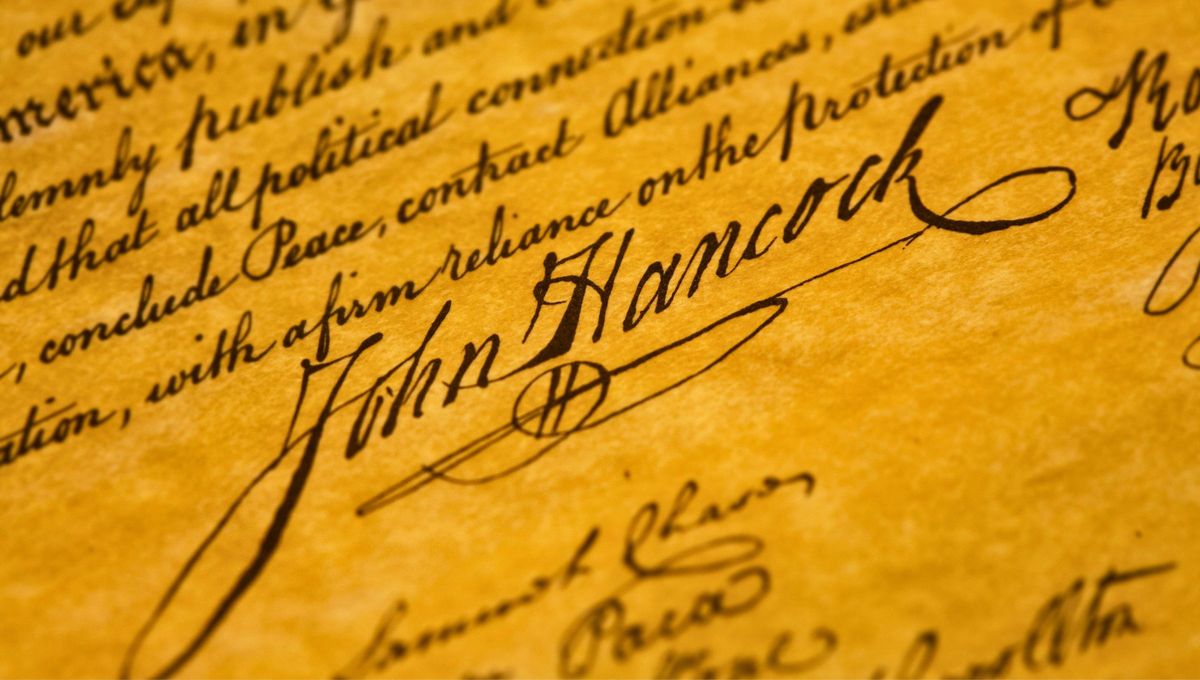 our
America, in
publish and
that all political connection
conclude Peace, contract Alliances,
with a firm reliance on the protection of
John Hancock
Samuel Chase
Paca